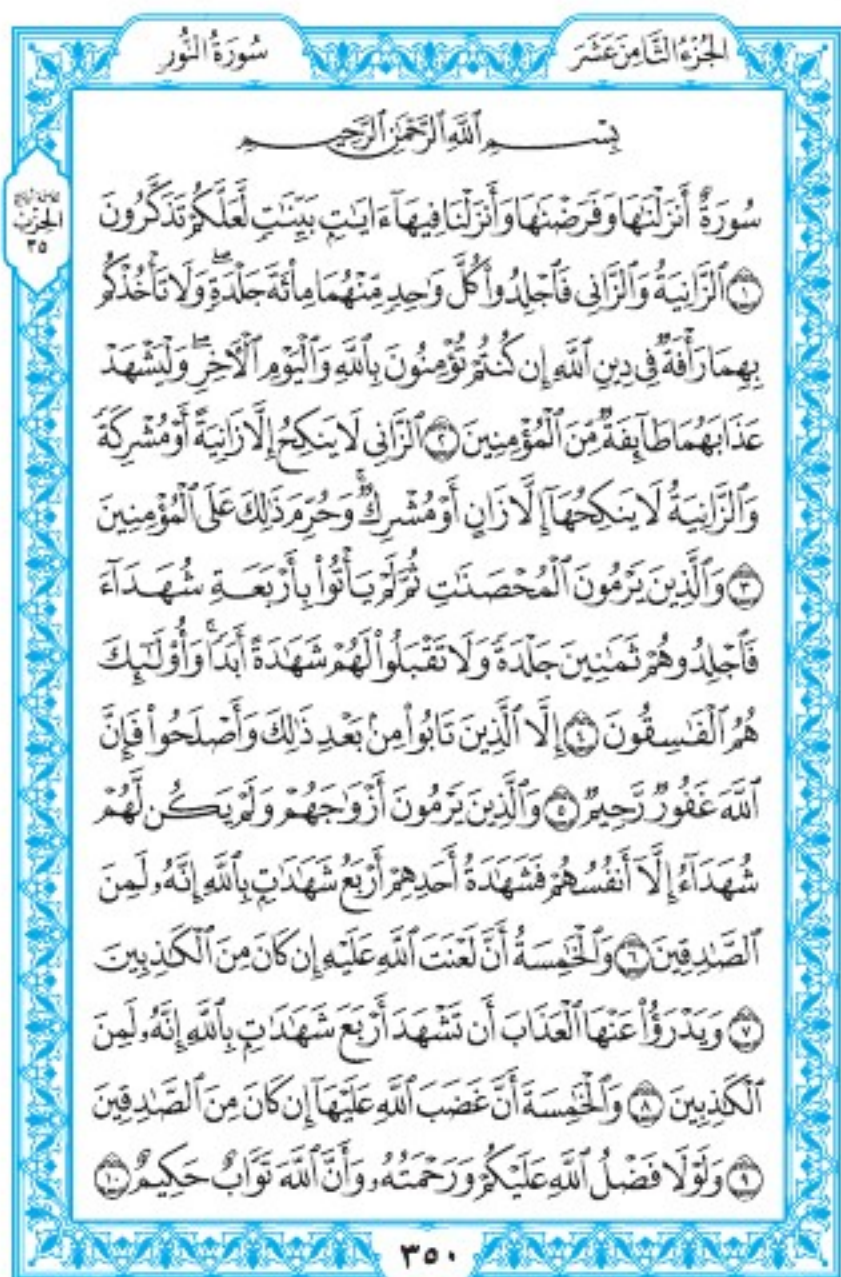 الجُزْءُ الثَّامِنَ عَشَرَ
سُورَةُ النُّور
بِسْمِ ٱللَّهِ ٱلرَّحْمَٰنِ ٱلرَّحِيمِ
الحِزْب
٣٥
سُورَةٌ أَنزَلْنَٰهَا وَفَرَضْنَٰهَا وَأَنزَلْنَا فِيهَآ ءَايَٰتٍۭ بَيِّنَٰتٍ لَّعَلَّكُمْ تَذَكَّرُونَ
١ ٱلزَّانِيَةُ وَٱلزَّانِى فَٱجْلِدُوا۟ كُلَّ وَٰحِدٍ مِّنْهُمَا مِا۟ئَةَ جَلْدَةٍۖ وَلَا تَأْخُذْكُم
بِهِمَا رَأْفَةٌ فِى دِينِ ٱللَّهِ إِن كُنتُمْ تُؤْمِنُونَ بِٱللَّهِ وَٱلْيَوْمِ ٱلْأَخِرِۖ وَلْيَشْهَدْ
عَذَابَهُمَا طَآئِفَةٌ مِّنَ ٱلْمُؤْمِنِينَ ٢ ٱلزَّانِى لَا يَنكِحُ إِلَّا زَانِيَةً أَوْ مُشْرِكَةً
وَٱلزَّانِيَةُ لَا يَنكِحُهَآ إِلَّا زَانٍ أَوْ مُشْرِكٌۚ وَحُرِّمَ ذَٰلِكَ عَلَى ٱلْمُؤْمِنِينَ
٣ وَٱلَّذِينَ يَرْمُونَ ٱلْمُحْصَنَٰتِ ثُمَّ لَمْ يَأْتُوا۟ بِأَرْبَعَةِ شُهَدَآءَ
فَٱجْلِدُوهُمْ ثَمَٰنِينَ جَلْدَةً وَلَا تَقْبَلُوا۟ لَهُمْ شَهَٰدَةً أَبَدًاۚ وَأُو۟لَٰٓئِكَ
هُمُ ٱلْفَٰسِقُونَ ٤ إِلَّا ٱلَّذِينَ تَابُوا۟ مِنۢ بَعْدِ ذَٰلِكَ وَأَصْلَحُوا۟ فَإِنَّ
ٱللَّهَ غَفُورٌ رَّحِيمٌ ٥ وَٱلَّذِينَ يَرْمُونَ أَزْوَٰجَهُمْ وَلَمْ يَكُن لَّهُمْ
شُهَدَآءُ إِلَّآ أَنفُسُهُمْ فَشَهَٰدَةُ أَحَدِهِمْ أَرْبَعُ شَهَٰدَٰتٍۭ بِٱللَّهِ إِنَّهُۥ لَمِنَ
ٱلصَّٰدِقِينَ ٦ وَٱلْخَٰمِسَةُ أَنَّ لَعْنَتَ ٱللَّهِ عَلَيْهِ إِن كَانَ مِنَ ٱلْكَٰذِبِينَ
٧ وَيَدْرَؤُا۟ عَنْهَا ٱلْعَذَابَ أَن تَشْهَدَ أَرْبَعَ شَهَٰدَٰتٍۭ بِٱللَّهِ إِنَّهُۥ لَمِنَ
ٱلْكَٰذِبِينَ ٨ وَٱلْخَٰمِسَةَ أَنَّ غَضَبَ ٱللَّهِ عَلَيْهَآ إِن كَانَ مِنَ ٱلصَّٰدِقِينَ
٩ وَلَوْلَا فَضْلُ ٱللَّهِ عَلَيْكُمْ وَرَحْمَتُهُۥ وَأَنَّ ٱللَّهَ تَوَّابٌ حَكِيمٌ ١٠
٣٥٠